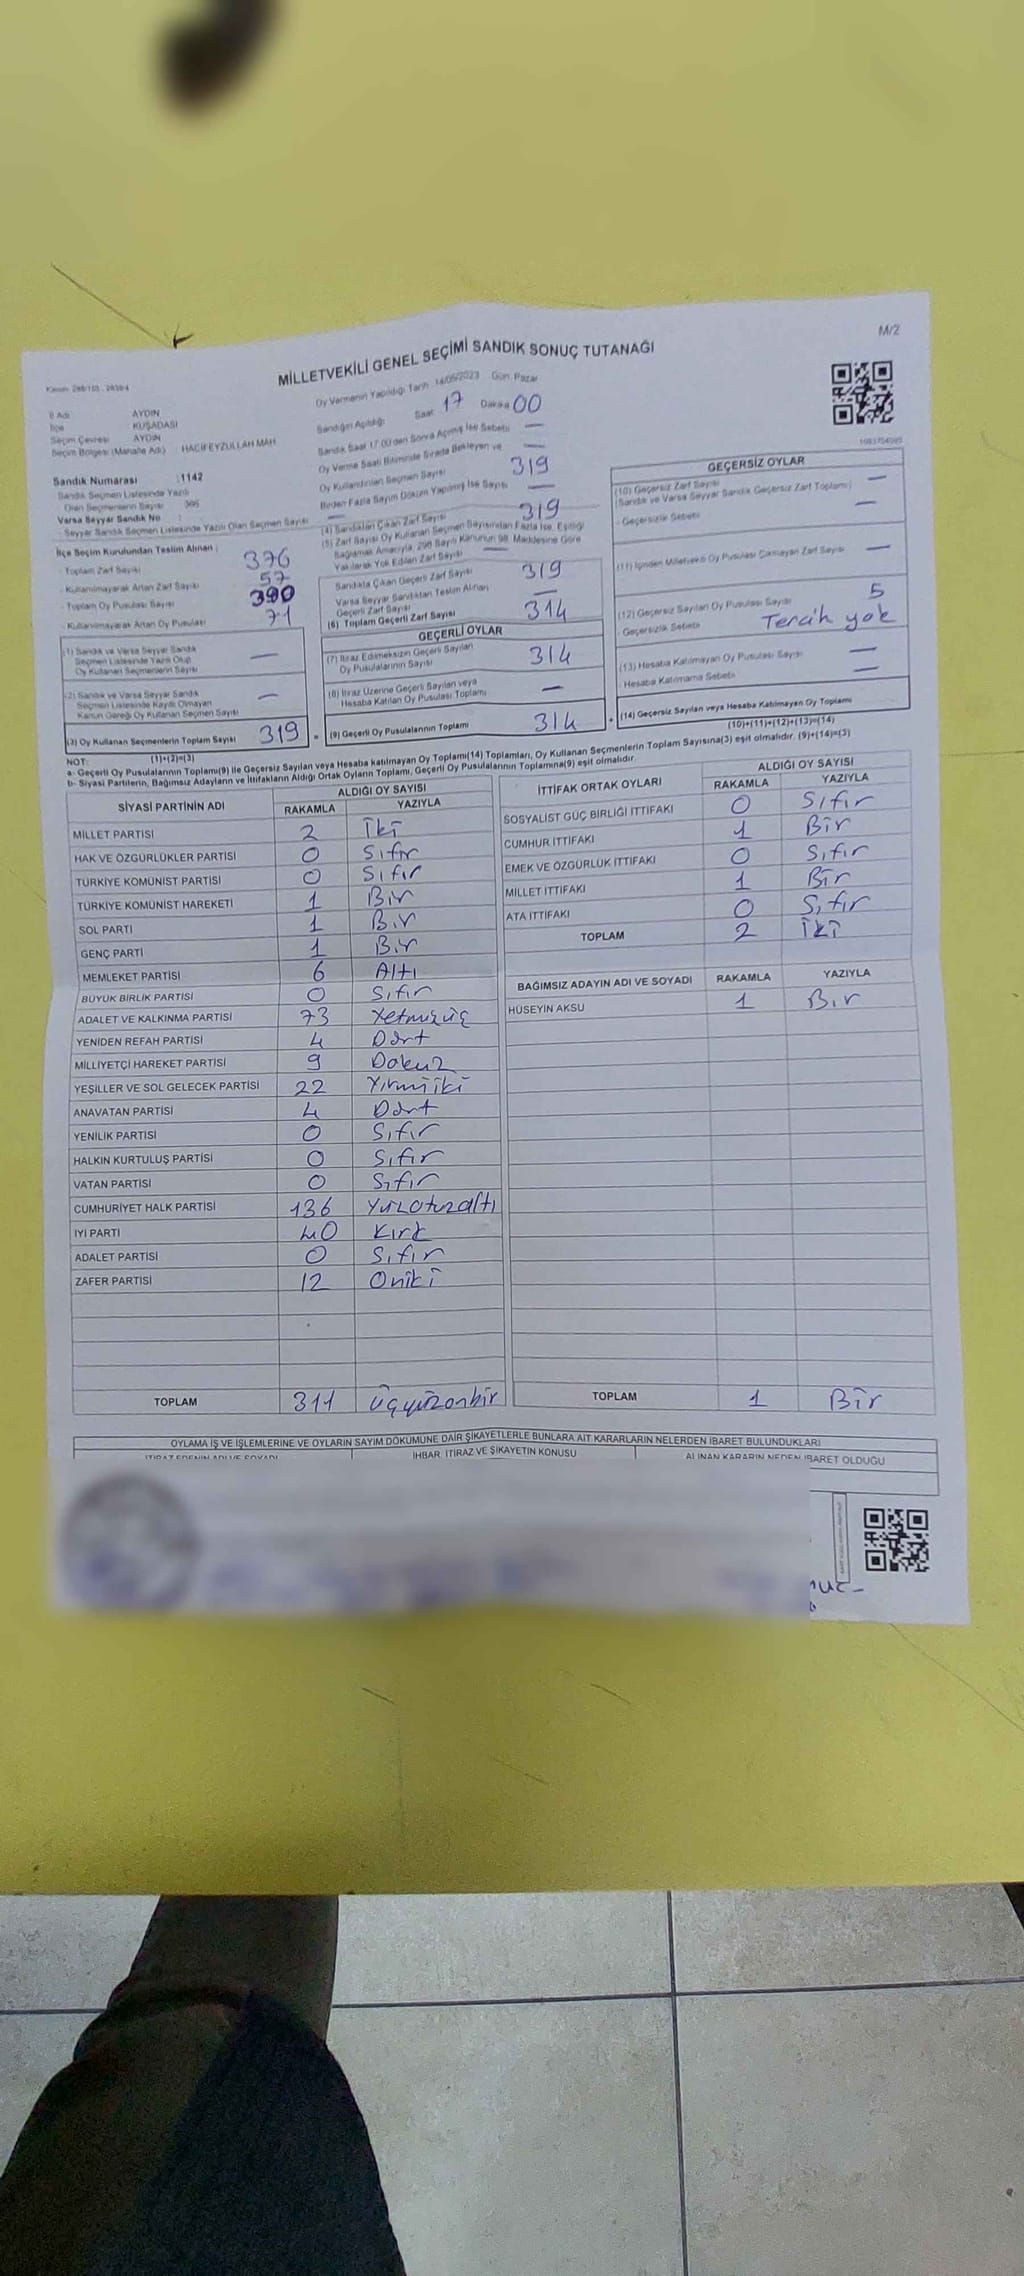 M/2
MİLLETVEKİLİ GENEL SEÇİMİ SANDIK SONUÇ TUTANAĞI
Oy Vermenin Yapıldığı Tarih : 14/05/2023 Gün: Pazar
İl Adı AYDIN
İlçe KUŞADASI
Seçim Çevresi AYDIN
Seçim Bölgesi (Mahalle Adı) : HACIFEYZULLAH MAH
Sandık Numarası : 1142
Sandık Seçmen Listesinde Yazılı
Olan Seçmenlerin Sayısı
Varsa Seyyar Sandık No :
Seyyar Sandık Seçmen Listesinde Yazılı Olan Seçmen Sayısı —
İlçe Seçim Kurulundan Teslim Alınan :
- Toplam Zarf Sayısı 376
- Kullanılmayarak Artan Zarf Sayısı 57
- Toplam Oy Pusulası Sayısı 390
- Kullanılmayarak Artan Oy Pusulası 71
(1) Sandık ve Varsa Seyyar Sandık
Seçmen Listesinde Yazılı Olup
Oy Kullanan Seçmenlerin Sayısı —
(2) Sandık ve Varsa Seyyar Sandık
Seçmen Listesinde Kayıtlı Olmayan
Kanun Gereği Oy Kullanan Seçmen Sayısı —
(3) Oy Kullanan Seçmenlerin Toplam Sayısı 319
(1)+(2)=(3)
Sandığın Açıldığı Saat 17 Dakika 00
Sandık Saat 17.00'den Sonra Açılmış İse Sebebi —
Oy Verme Saati Bitiminde Sırada Bekleyen ve
Oy Kullandırılan Seçmen Sayısı — 319
Birden Fazla Sayım Döküm Yapılmış İse Sayısı
(4) Sandıktan Çıkan Zarf Sayısı 319
(5) Zarf Sayısı Oy Kullanan Seçmen Sayısından Fazla İse, Eşitliği
Sağlamak Amacıyla, 298 Sayılı Kanunun 98. Maddesine Göre
Yakılarak Yok Edilen Zarf Sayısı —
Sandıkta Çıkan Geçerli Zarf Sayısı 319
Varsa Seyyar Sandıktan Teslim Alınan
Geçerli Zarf Sayısı —
(6) Toplam Geçerli Zarf Sayısı 314
GEÇERLİ OYLAR
(7) İtiraz Edilmeksizin Geçerli Sayılan
Oy Pusulalarının Sayısı 314
(8) İtiraz Üzerine Geçerli Sayılan veya
Hesaba Katılan Oy Pusulası Toplamı —
(9) Geçerli Oy Pusulalarının Toplamı 314
GEÇERSİZ OYLAR
(10) Geçersiz Zarf Sayısı
(Sandık ve Varsa Seyyar Sandık Geçersiz Zarf Toplamı) —
- Geçersizlik Sebebi —
(11) İçinden Milletvekili Oy Pusulası Çıkmayan Zarf Sayısı —
(12) Geçersiz Sayılan Oy Pusulası Sayısı 5
- Geçersizlik Sebebi Tercih yok
(13) Hesaba Katılmayan Oy Pusulası Sayısı —
- Hesaba Katılmama Sebebi —
(14) Geçersiz Sayılan veya Hesaba Katılmayan Oy Toplamı
(10)+(11)+(12)+(13)=(14)
NOT:
a- Geçerli Oy Pusulalarının Toplamı(9) ile Geçersiz Sayılan veya Hesaba katılmayan Oy Toplamı(14) Toplamları, Oy Kullanan Seçmenlerin Toplam Sayısına(3) eşit olmalıdır. (9)+(14)=(3)
b- Siyasi Partilerin, Bağımsız Adayların ve İttifakların Aldığı Ortak Oyların Toplamı, Geçerli Oy Pusulalarının Toplamına(9) eşit olmalıdır.
SİYASİ PARTİNİN ADI ALDIĞI OY SAYISI
RAKAMLA YAZIYLA
MİLLET PARTİSİ 2 İki
HAK VE ÖZGÜRLÜKLER PARTİSİ 0 Sıfır
TÜRKİYE KOMÜNİST PARTİSİ 0 Sıfır
TÜRKİYE KOMÜNİST HAREKETİ 1 Bir
SOL PARTİ 1 Bir
GENÇ PARTİ 1 Bir
MEMLEKET PARTİSİ 6 Altı
BÜYÜK BİRLİK PARTİSİ 0 Sıfır
ADALET VE KALKINMA PARTİSİ 73 Yetmişüç
YENİDEN REFAH PARTİSİ 4 Dört
MİLLİYETÇİ HAREKET PARTİSİ 9 Dokuz
YEŞİLLER VE SOL GELECEK PARTİSİ 22 Yirmiiki
ANAVATAN PARTİSİ 4 Dört
YENİLİK PARTİSİ 0 Sıfır
HALKIN KURTULUŞ PARTİSİ 0 Sıfır
VATAN PARTİSİ 0 Sıfır
CUMHURİYET HALK PARTİSİ 136 Yüzotuzaltı
İYİ PARTİ 40 Kırk
ADALET PARTİSİ 0 Sıfır
ZAFER PARTİSİ 12 Oniki
TOPLAM 311 Üçyüzonbir
İTTİFAK ORTAK OYLARI ALDIĞI OY SAYISI
RAKAMLA YAZIYLA
SOSYALİST GÜÇ BİRLİĞİ İTTİFAKI 0 Sıfır
CUMHUR İTTİFAKI 1 Bir
EMEK VE ÖZGÜRLÜK İTTİFAKI 0 Sıfır
MİLLET İTTİFAKI 1 Bir
ATA İTTİFAKI 0 Sıfır
TOPLAM 2 İki
BAĞIMSIZ ADAYIN ADI VE SOYADI RAKAMLA YAZIYLA
HÜSEYİN AKSU 1 Bir
TOPLAM 1 Bir
OYLAMA İŞ VE İŞLEMLERİNE VE OYLARIN SAYIM DÖKÜMÜNE DAİR ŞİKAYETLERLE BUNLARA AİT KARARLARIN NELERDEN İBARET BULUNDUKLARI
İTİRAZ EDENİN ADI VE SOYADI İHBAR, İTİRAZ VE ŞİKAYETİN KONUSU ALINAN KARARIN NEDEN İBARET OLDUĞU